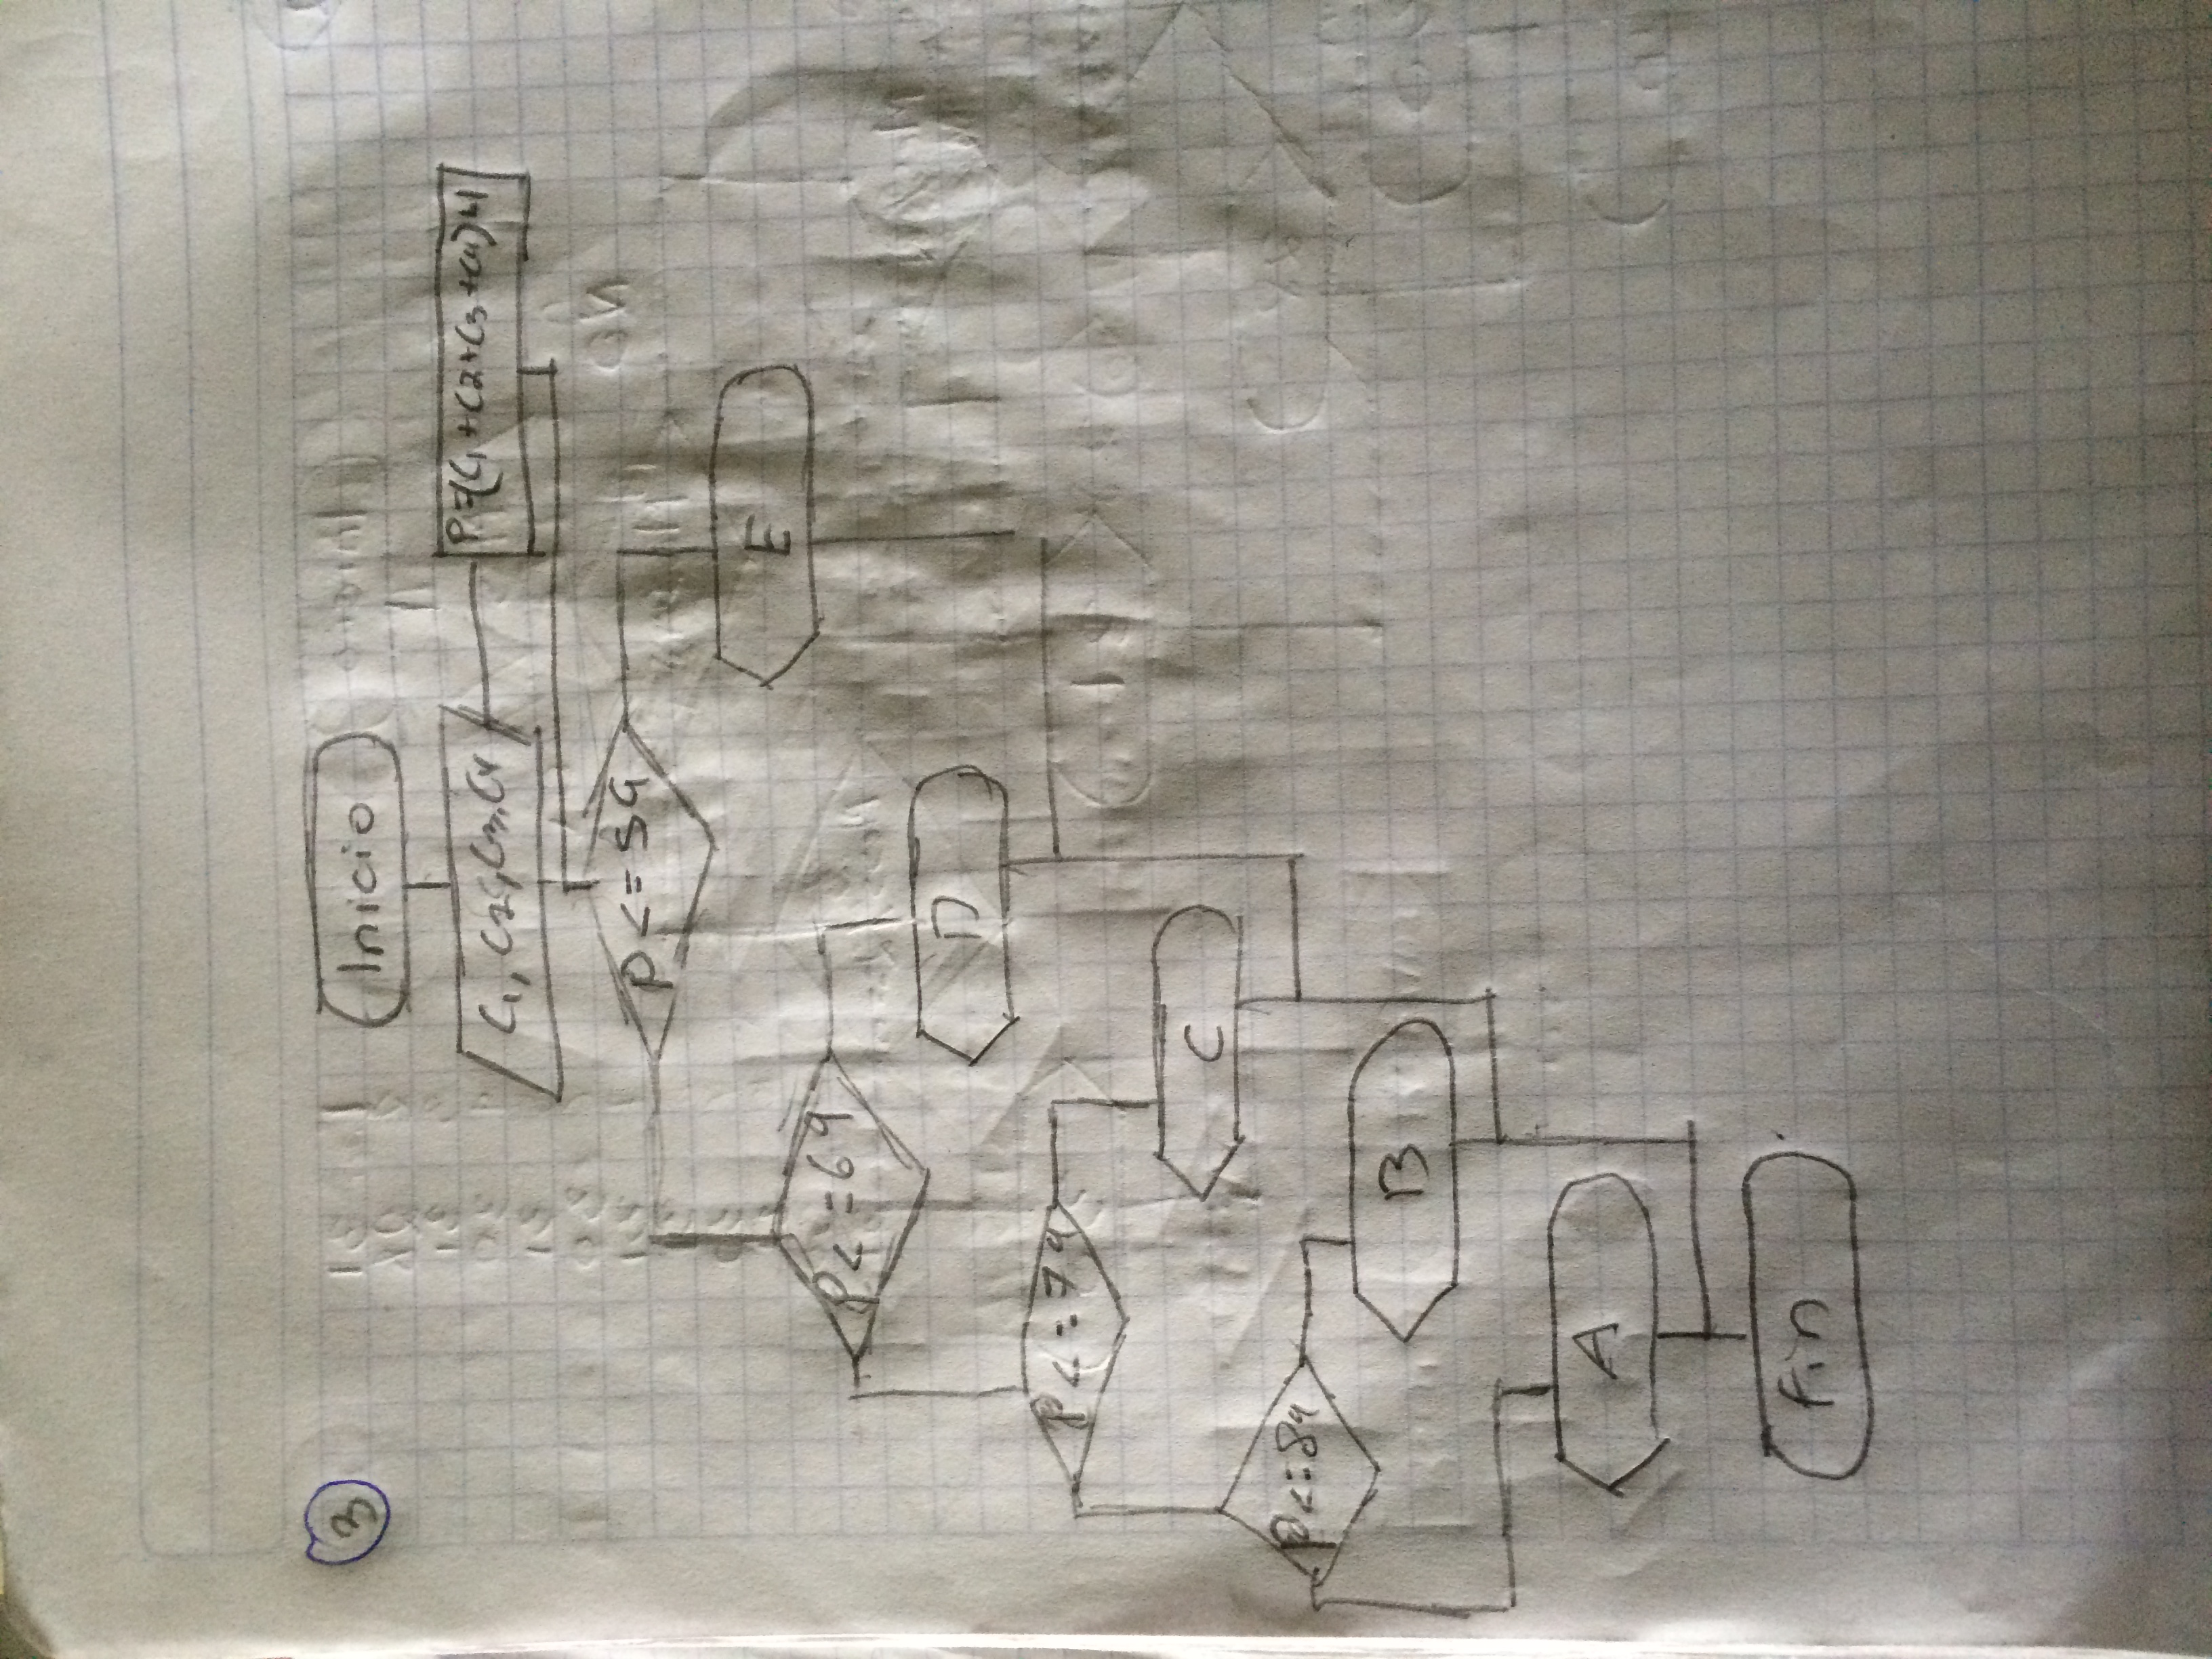 3
Inicio
C1, C2, C3, C4
P=(C1+C2+C3+C4)/4
P<=59
E
P<=69
D
P<=79
C
P<=89
B
A
Fin